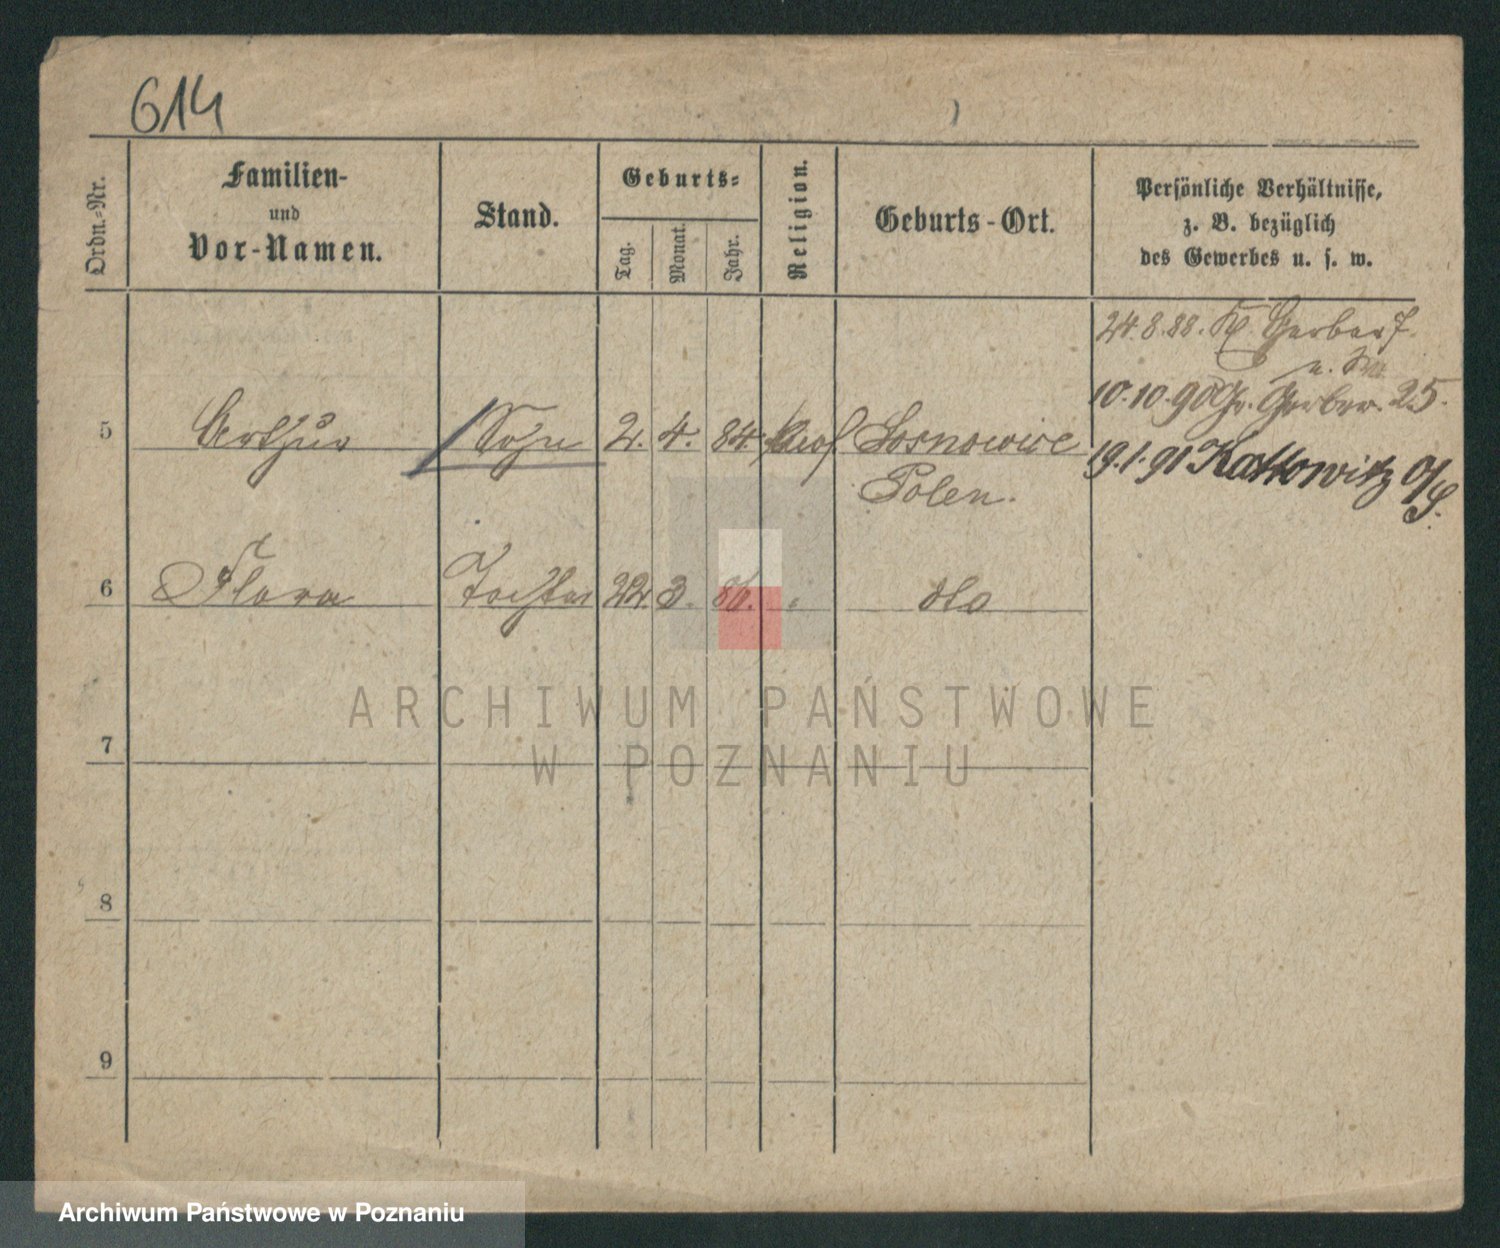 614
Ordn.-Nr.
Familien-
und
Vor-Namen.
Stand.
Geburts-
Tag.
Monat.
Jahr.
Religion.
Geburts-Ort.
Persönliche Verhältnisse,
z. B. bezüglich
des Gewerbes u. s. w.
24.8.88. Kl. Gerber 7.
10.10.90 Gr. Gerber. 25.
19.1.91 Kattowitz O/S.
5 Arthur Sohn 2. 4. 84. Sosnowice
Polen.
6 Flora Tochter 22. 3. 86. " dto
7
8
9
ARCHIWUM PAŃSTWOWE
W POZNANIU
Archiwum Państwowe w Poznaniu